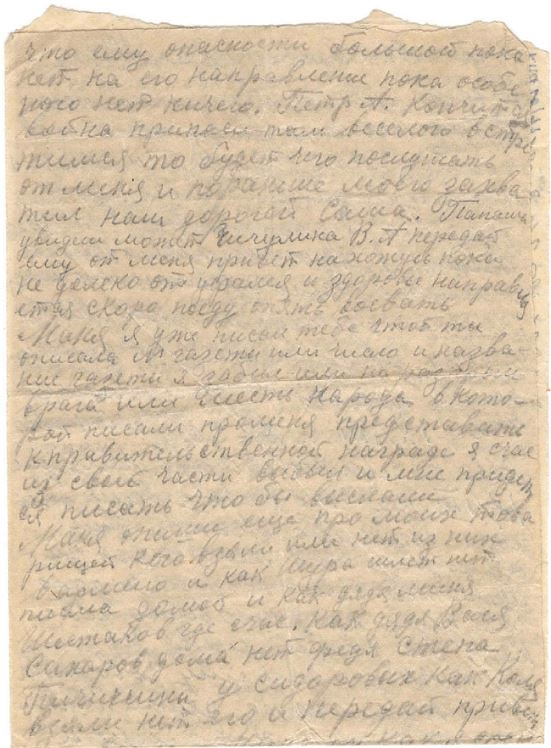 что ему опасности большой пока
нет на его направление пока особе
ного нет ничего. Петр А. Кончится
война приноси там веселого встре
тимся то будет что послушать
от меня и пораньше моего захва
тил наш дорогой Саша. Папаша
увидиш может Чичулина В. А передай
ему от меня привет нахожусь пока
не далеко от Урамия и здоровие направля
ется скоро поеду опять воевать
Маня я уже писал тебе чтоб ты
описала № газети или число и назва-
ние газети я забыл или на разгром
врага или чисть народа в кото-
рой писали променя представить
к правительственной награде я счас
из своей части выбыл и мне придет
ся писать что бы выслали
Маня опиши еще про моих това
рищей кого взяли или нет из них
в армию и как Шура шлет нет
писма домой и как дядя меня
Шестаков где счас. Как дядя Вася
Сахаров дома нет федя стена
у сидоровых как Коля
взяли нет его и передай привет